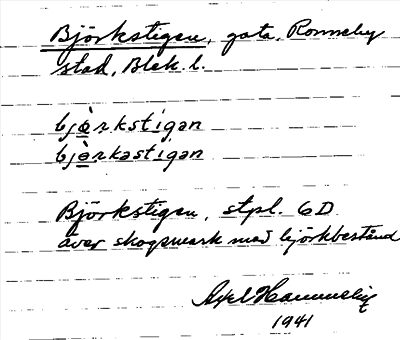 Björkstigen, gata, Ronneby
stad, Blek. l.
bjø̀rkstigən
bjø̀rkəstigən
Björkstigen, stpl. 6D
över skogsmark med björkbestånd
Axel
1941